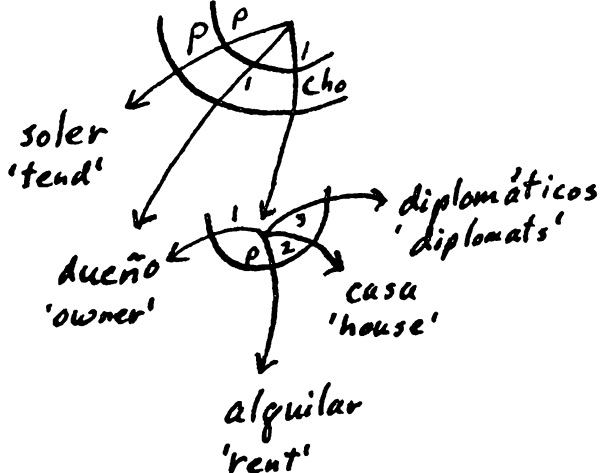 P P
1 1
Cho
soler
'tend'
1 3
diplomáticos
'diplomats'
dueño
'owner'
P 2
casa
'house'
alquilar
'rent'